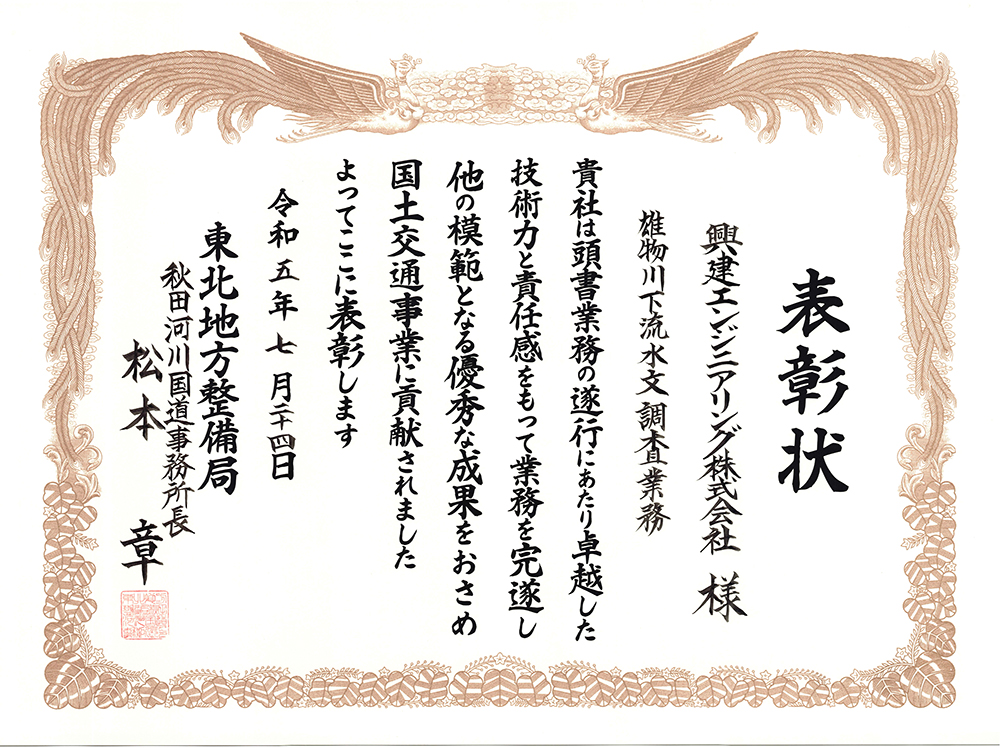 表彰状
興建エンジニアリング株式会社 様
雄物川下流水文調査業務
貴社は頭書業務の遂行にあたり卓越した
技術力と責任感をもって業務を完遂し
他の模範となる優秀な成果をおさめ
国土交通事業に貢献されました
よってここに表彰します
令和五年七月二十四日
東北地方整備局
秋田河川国道事務所長
松本 章